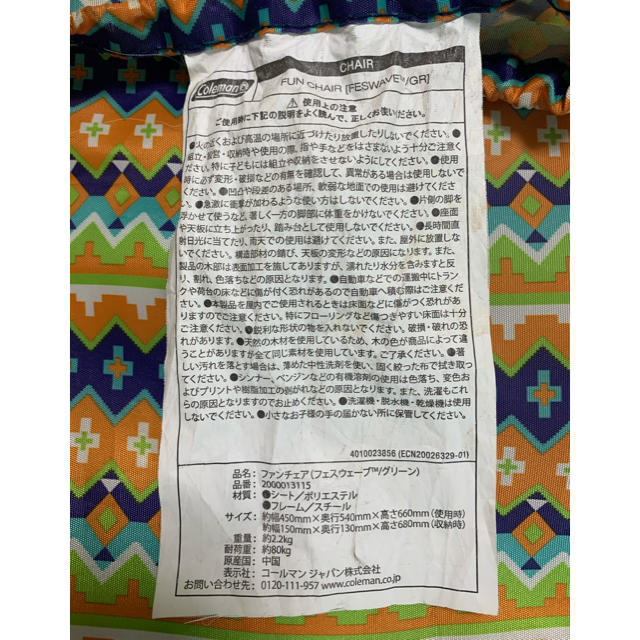 Coleman
CHAIR
FUN CHAIR [FESWAVE™/GR]
⚠ 使用上の注意
ご使用時に下記の説明をよく読んで、正しくお使いください。
●火の近くおよび高温の場所に近づけたり放置したりしないでください。●
組立・設営・収納時や使用の際、指や手などをはさまないよう十分ご注意く
ださい。特に子どもには組立や収納をさせないようにしてください。●使用
時に必ず変形・破損などの有無を確認して、異常がある場合は使用しないで
ください。●凹凸や段差のある場所、軟弱な地面での使用は避けてくださ
い。●急激に衝撃が加わるような使い方はしないでください。●片側の脚を
浮かせて使うなど、著しく一方の脚部に体重をかけないでください。●座面
や天板に立ち上がったり、踏み台として使用しないでください。●長時間直
射日光に当てたり、雨天での使用は避けてください。また、屋外に放置しな
いでください。構造部材の錆び、天板の変形などの原因になります。また、
製品の木部は表面加工を施してありますが、濡れたり水分を含みますと反
り、割れ、色落ちなどの原因となります。●自動車などでの運搬中にトラン
クや荷台の床などに傷が付く恐れがあるので自動車へ積む際はご注意くだ
さい。●本製品を屋内でご使用されるときは床面などに傷がつく恐れがあり
ますのでご注意ください。特にフローリングなど傷つきやすい床面は十分
ご注意ください。●鋭利な形状の物を入れないでください。破損・破れの恐
れがあります。●天然の木材を使用しているため、木の色が商品によって違
うことがありますが全て同じ素材を使用しています。ご了承ください。●著
しい汚れを落とす場合は、薄めた中性洗剤を使い、固く絞った布で拭き取っ
てください。●シンナー、ベンジンなどの有機溶剤の使用は色落ち、変色お
よびプリントや樹脂加工の剥がれなどの原因となります。また、洗濯もこれ
らの原因となりますのでお止めください。●洗濯機・脱水機・乾燥機は使用
しないでください。●小さなお子様の手の届かない所に保管してください。
4010023856 (ECN20026329-01)
品名: ファンチェア(フェスウェーブ™/グリーン)
品番: 2000013115
材質: ●シート/ポリエステル
●フレーム/スチール
サイズ: 約幅450mm×奥行540mm×高さ660mm(使用時)
約幅150mm×奥行130mm×高さ680mm(収納時)
重量: 約2.2kg
耐荷重: 約80kg
原産国: 中国
表示社: コールマン ジャパン株式会社
お問い合わせ先: 0120-111-957 www.coleman.co.jp